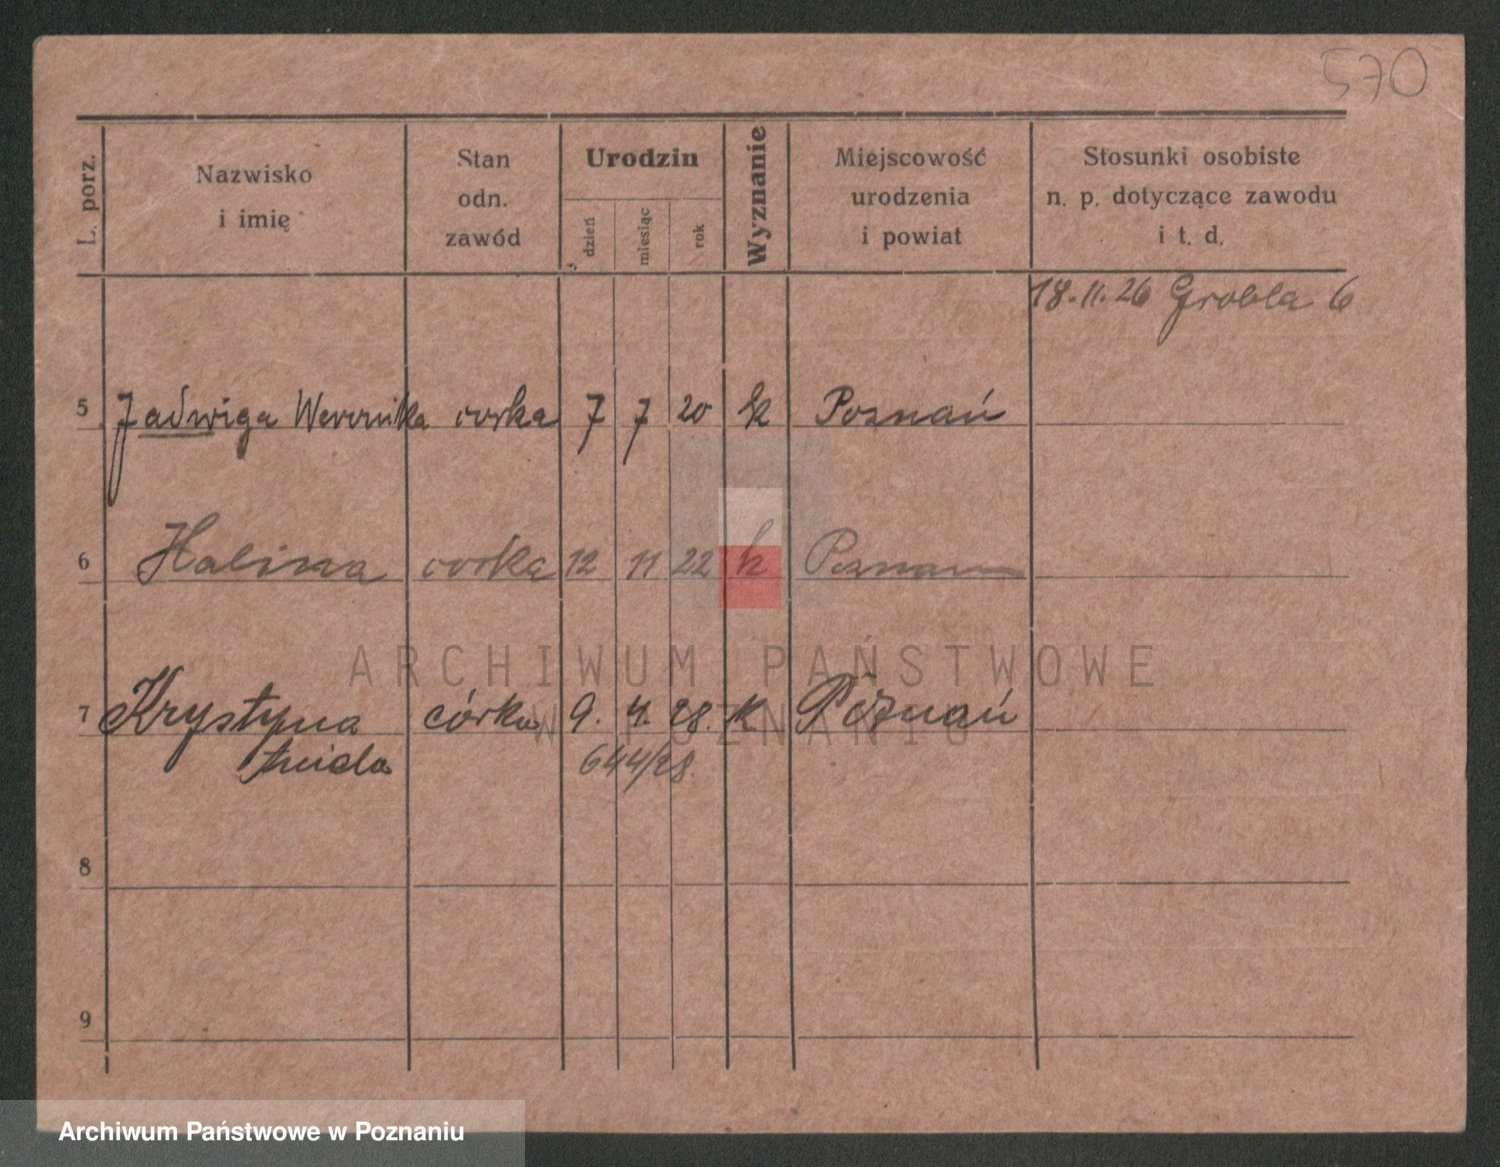 570
L. porz.
Nazwisko
i imię
Stan
odn.
zawód
Urodzin
dzień
miesiąc
rok
Wyznanie
Miejscowość
urodzenia
i powiat
Stosunki osobiste
n. p. dotyczące zawodu
i t. d.
18.11.26 Grobla 6
5 Jadwiga Weronika corka 7 7 20 k Poznań
6 Halina corka 12 11 22 k Poznań
7 Krystyna córka 9. 4. 28. k Poznań
644/28.
8
9
ARCHIWUM PAŃSTWOWE
W POZNANIU
Archiwum Państwowe w Poznaniu